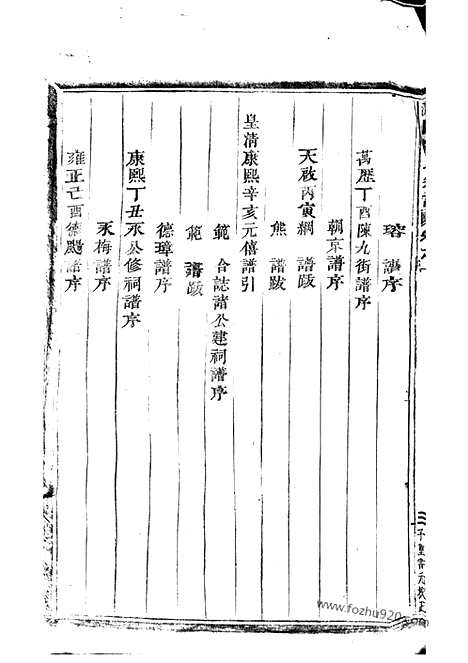 瑢譜序
萬歷丁酉陳九街譜序
朝京譜序
天啟丙寅綱譜跋
熊譜跋
皇清康熙辛亥元僖譜引
範合誌諸公建祠譜序
範譜跋
德璋譜序
康熙丁丑永公修祠譜序
永梅譜序
雍正己酉德颺譜序
www.fozhu920.com